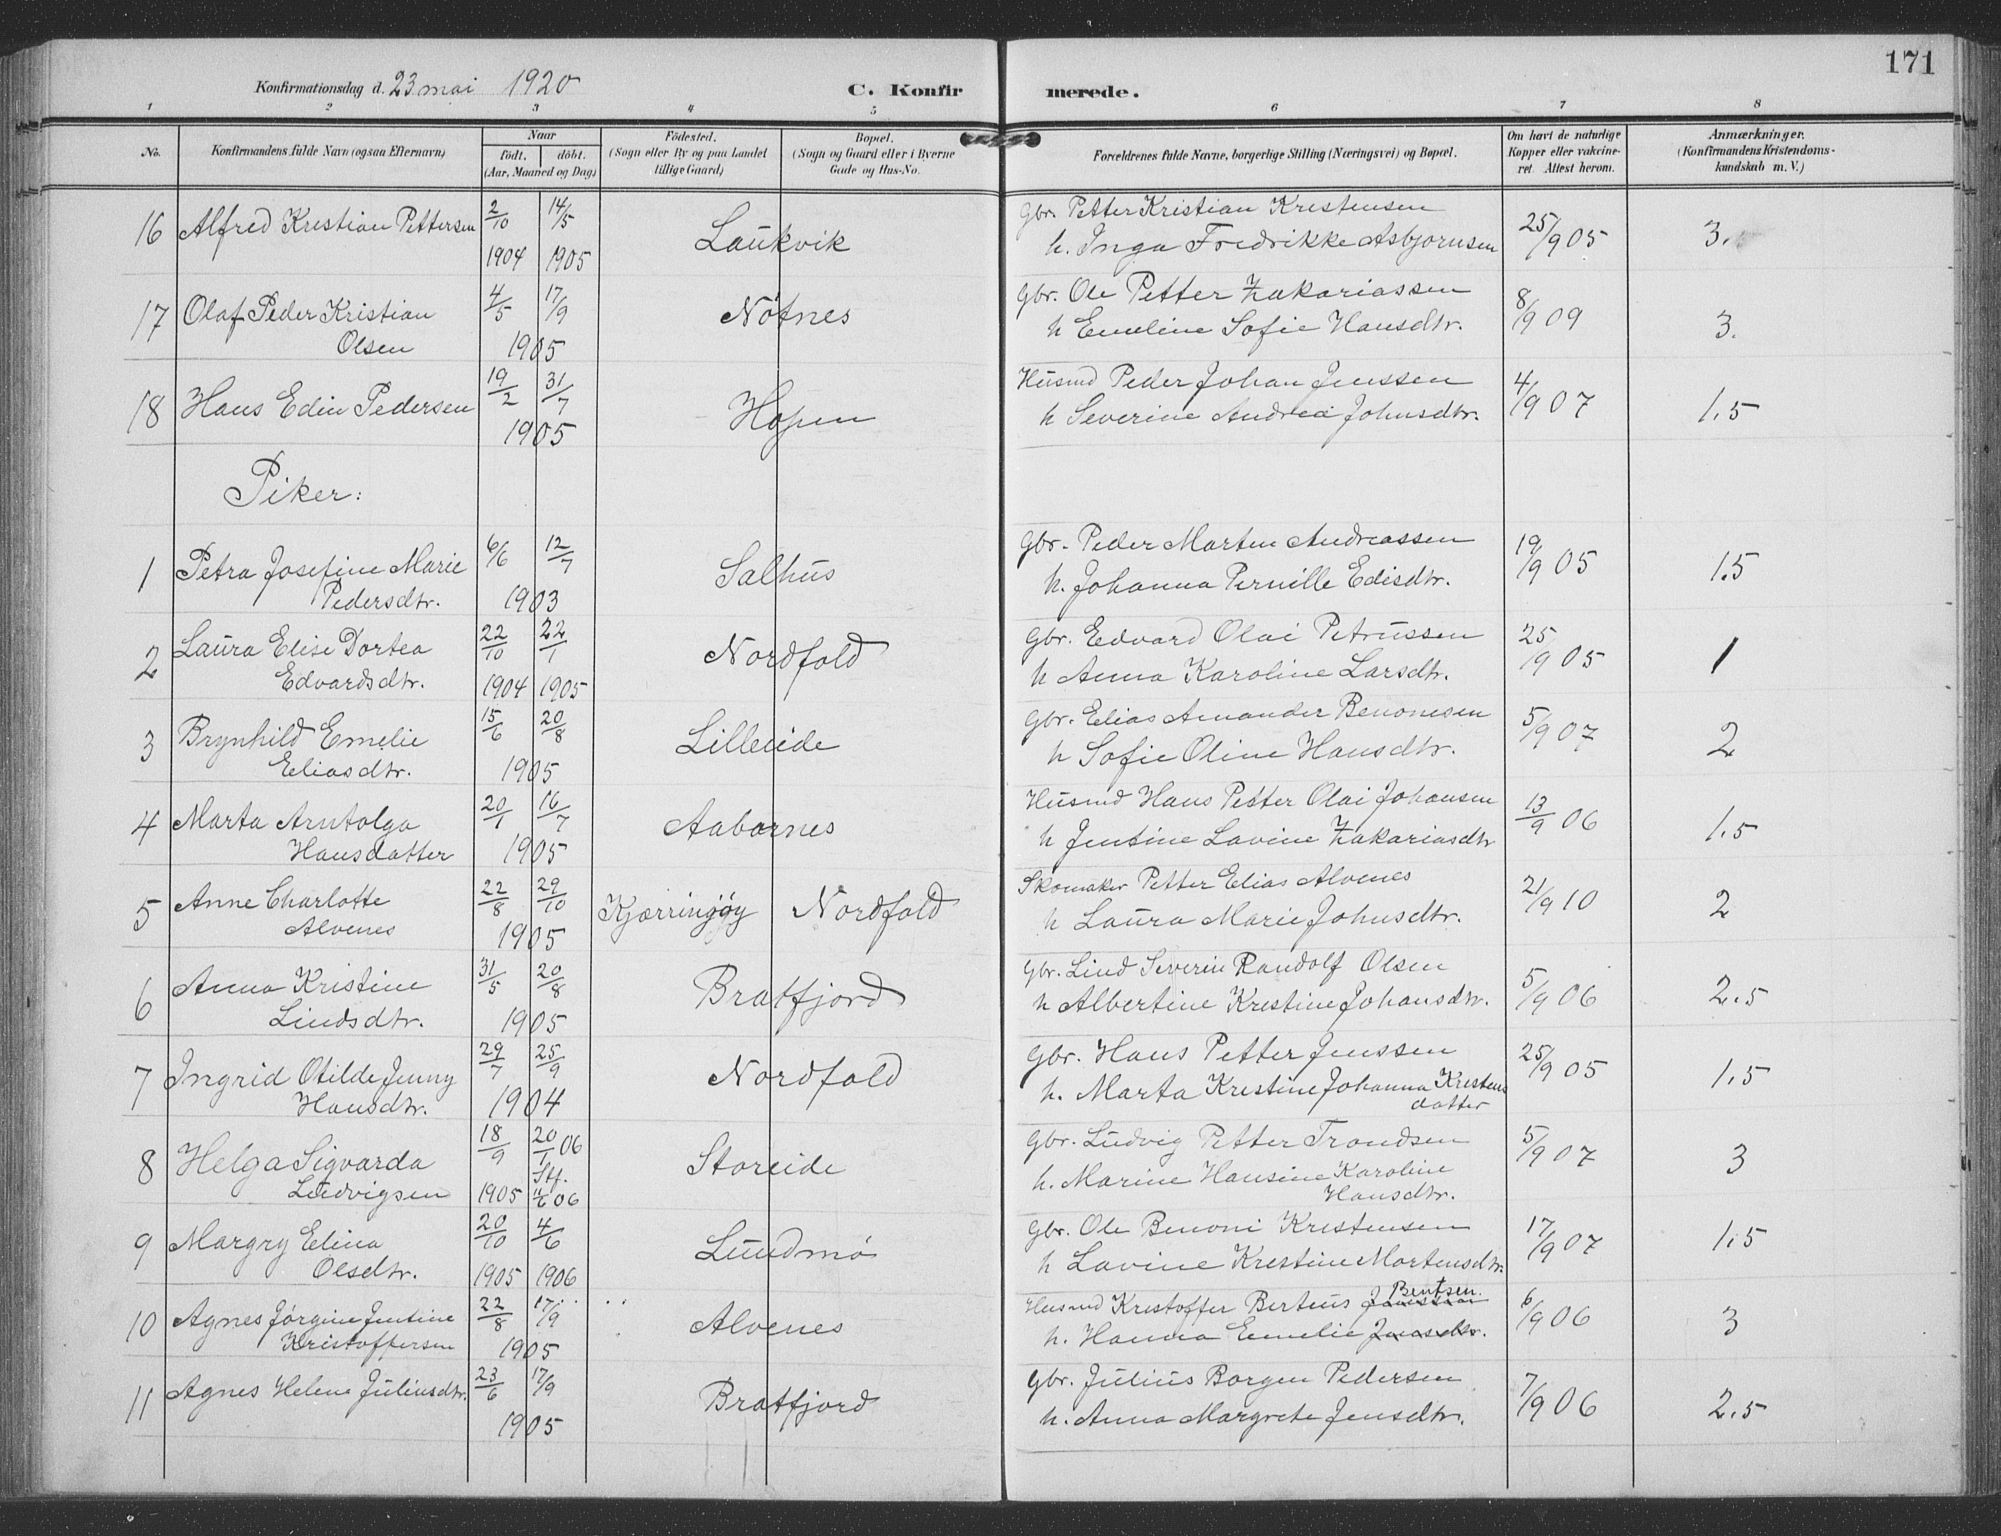 171
Konfirmationsdag d. 23 mai 1920 C. Konfirmerede.
1 2 3 4 5 6 7 8
No. Konfirmandens fulde Navn (ogsaa Efternavn) Naar født. døbt. (Aar, Maaned og Dag) Fødested. (Sogn eller By og paa Landet tillige Gaard) Bopæl. (Sogn og Gaard eller i Byerne Gade og Hus-No. Forældrenes fulde Navne, borgerlige Stilling (Næringsvei) og Bopæl. Om havt de naturlige Kopper eller vakcineret. Attest herom. Anmærkninger. (Konfirmandens Kristendomskundskab m. V.)
16 Alfred Kristian Pettersen 2/10 1904 14/5 1905 Laukvik Gbr. Petter Kristian Kristensen 25/9 05 3.
h. Inga Fredrikke Asbjørnsen
17 Olaf Peder Kristian 4/5 17/9 Nøtnes Gbr. Ole Petter Zakariassen 8/9 09 3.
Olsen 1905 h Emeline Sofie Hansdtr.
18 Hans Edin Pedersen 19/2 31/7 1905 Hopen Husmd Peder Johan Jenssen 4/9 07 1.5
h Severine Andrea Johnsdtr.
Piker:
1 Petra Josefine Marie 6/6 12/7 Salhus Gbr. Peder Morten Andreassen 19/9 05 1.5
Pedersdtr. 1903 h. Johanna Pernille Edisdtr.
2 Laura Elise Dortea 22/10 22/1 Nordfold Gbr. Edvard Olai Petrussen 25/9 05 1
Edvardsdtr. 1904 1905 h Anna Karoline Larsdtr.
3 Brynhild Emelie 15/6 20/8 Lilleeide Gbr. Elias Amander Benonisen 5/9 07 2
Eliasdtr. 1905 h Sofie Oline Hansdtr.
4 Marta Arntolga 20/1 16/7 Aabornes Husmd Hans Petter Olai Johansen 13/9 06 1.5
Hansdatter 1905 h Jentine Lovine Zakariasdtr
5 Anne Charlotte 22/8 29/10 Kjærringøy Nordfold Skomaker Petter Elias Alvenes 21/9 10 2
Alvenes 1905 h Laura Marie Johnsdtr.
6 Anna Kristine 31/5 20/8 Bratfjord Gbr. Lind Severin Randolf Olsen 5/9 06 2.5
Lindsdtr. 1905 h Albertine Krestine Johansdtr.
7 Ingrid Otilde Jenny 29/7 25/9 Nordfold Gbr. Hans Petter Jenssen 25/9 05 1.5
Hansdtr. 1904 h. Marta Krestine Johanna Krestens
datter
8 Helga Sigvarda 18/9 20/1 06 Storeide Gbr. Ludvig Petter Trondsen 5/9 07 3
Stf. h. Marine Hansine Karoline
Ludvigsen 1905 4/6 06 Hansdtr.
9 Margry Elina 20/10 4/6 Lundmo Gbr. Ole Benoni Kristensen 17/9 07 1.5
Olsdtr. 1905 1906 h Lovine Krestine Mortensdtr.
10 Agnes Jørgine Jentine 22/8 17/9 Alvenes Husmd Kristoffer Berteus Bentsen. 6/9 06 3
Kristoffersen 1905 h. Hanna Emelie
11 Agnes Helene Juliusdtr. 23/6 17/9 1905 Bratfjord Gbr. Julius Borgen Pedersen 7/9 06 2.5
h. Anna Margrete Jensdtr.